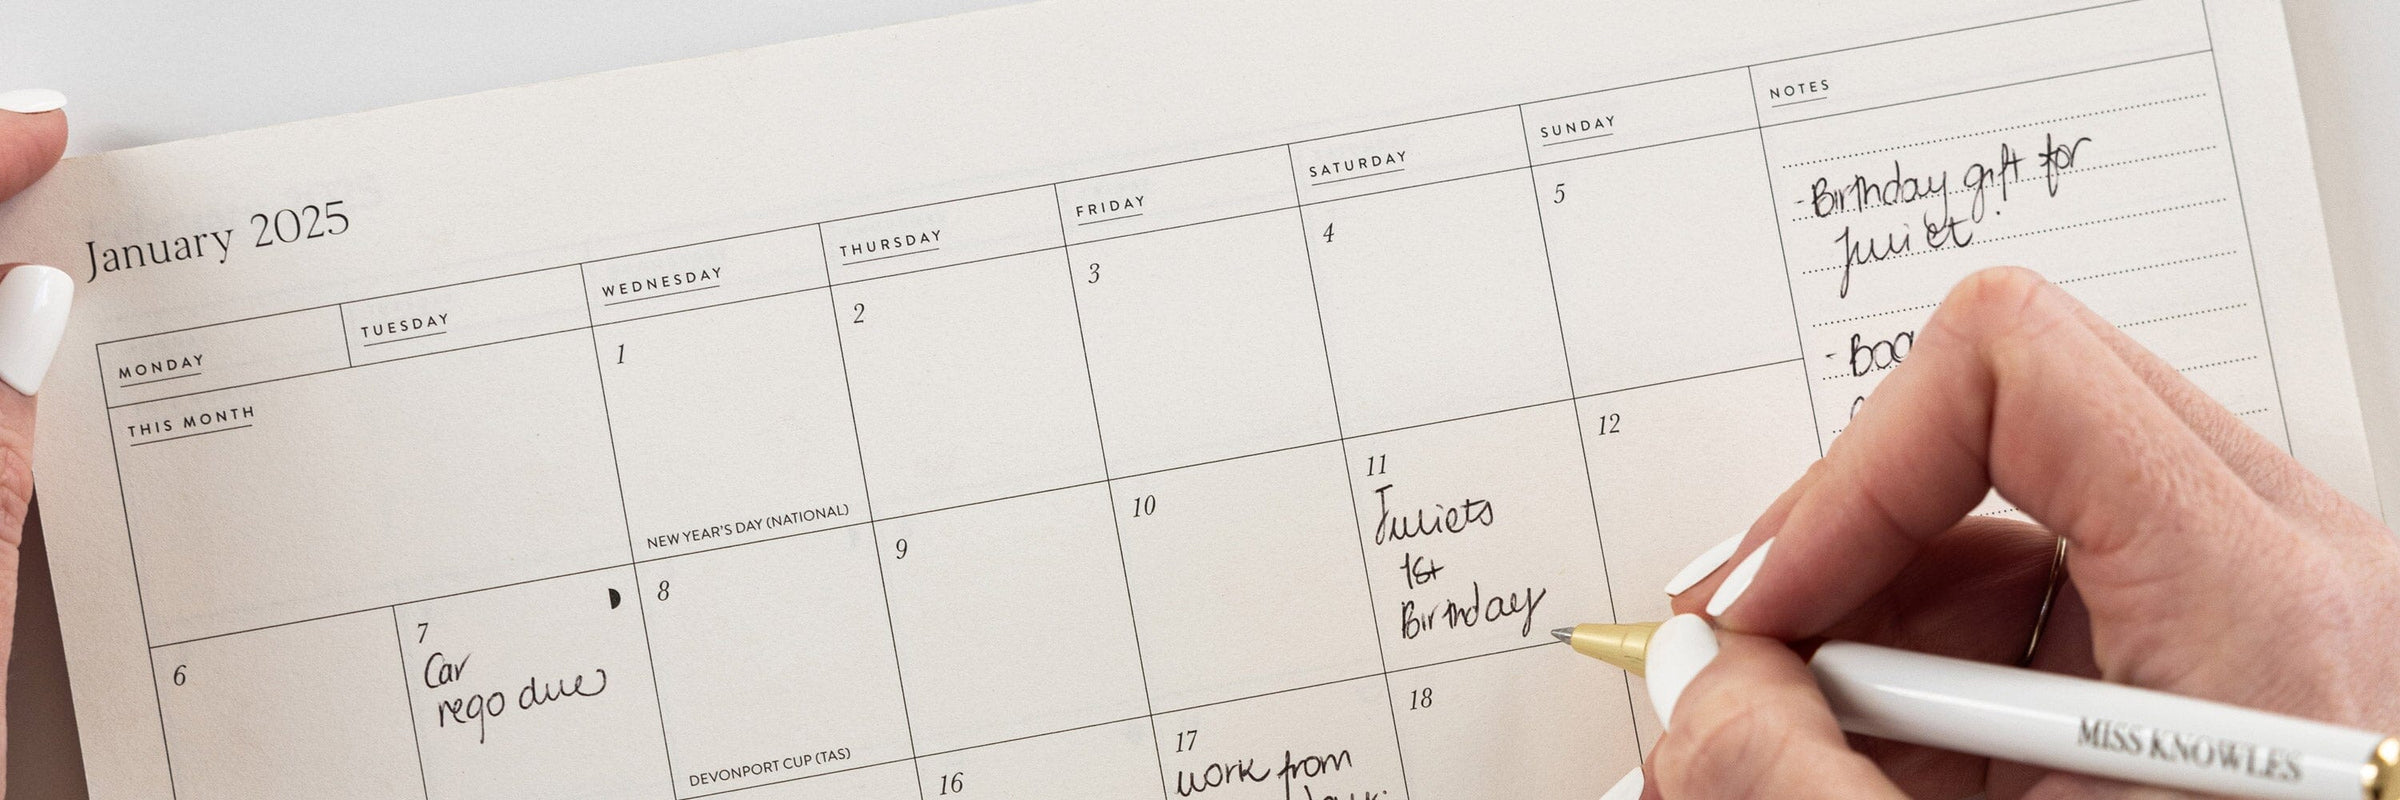 January 2025
MONDAY
TUESDAY
WEDNESDAY
THURSDAY
FRIDAY
SATURDAY
SUNDAY
NOTES
THIS MONTH
1
NEW YEAR'S DAY (NATIONAL)
2
3
4
5
- Birthday gift for
Juliet.
-
6
7
Car
rego due
8
DEVONPORT CUP (TAS)
9
10
11
Juliets
1st
Birthday
12
16
17
work from
18
MISS KNOWLES